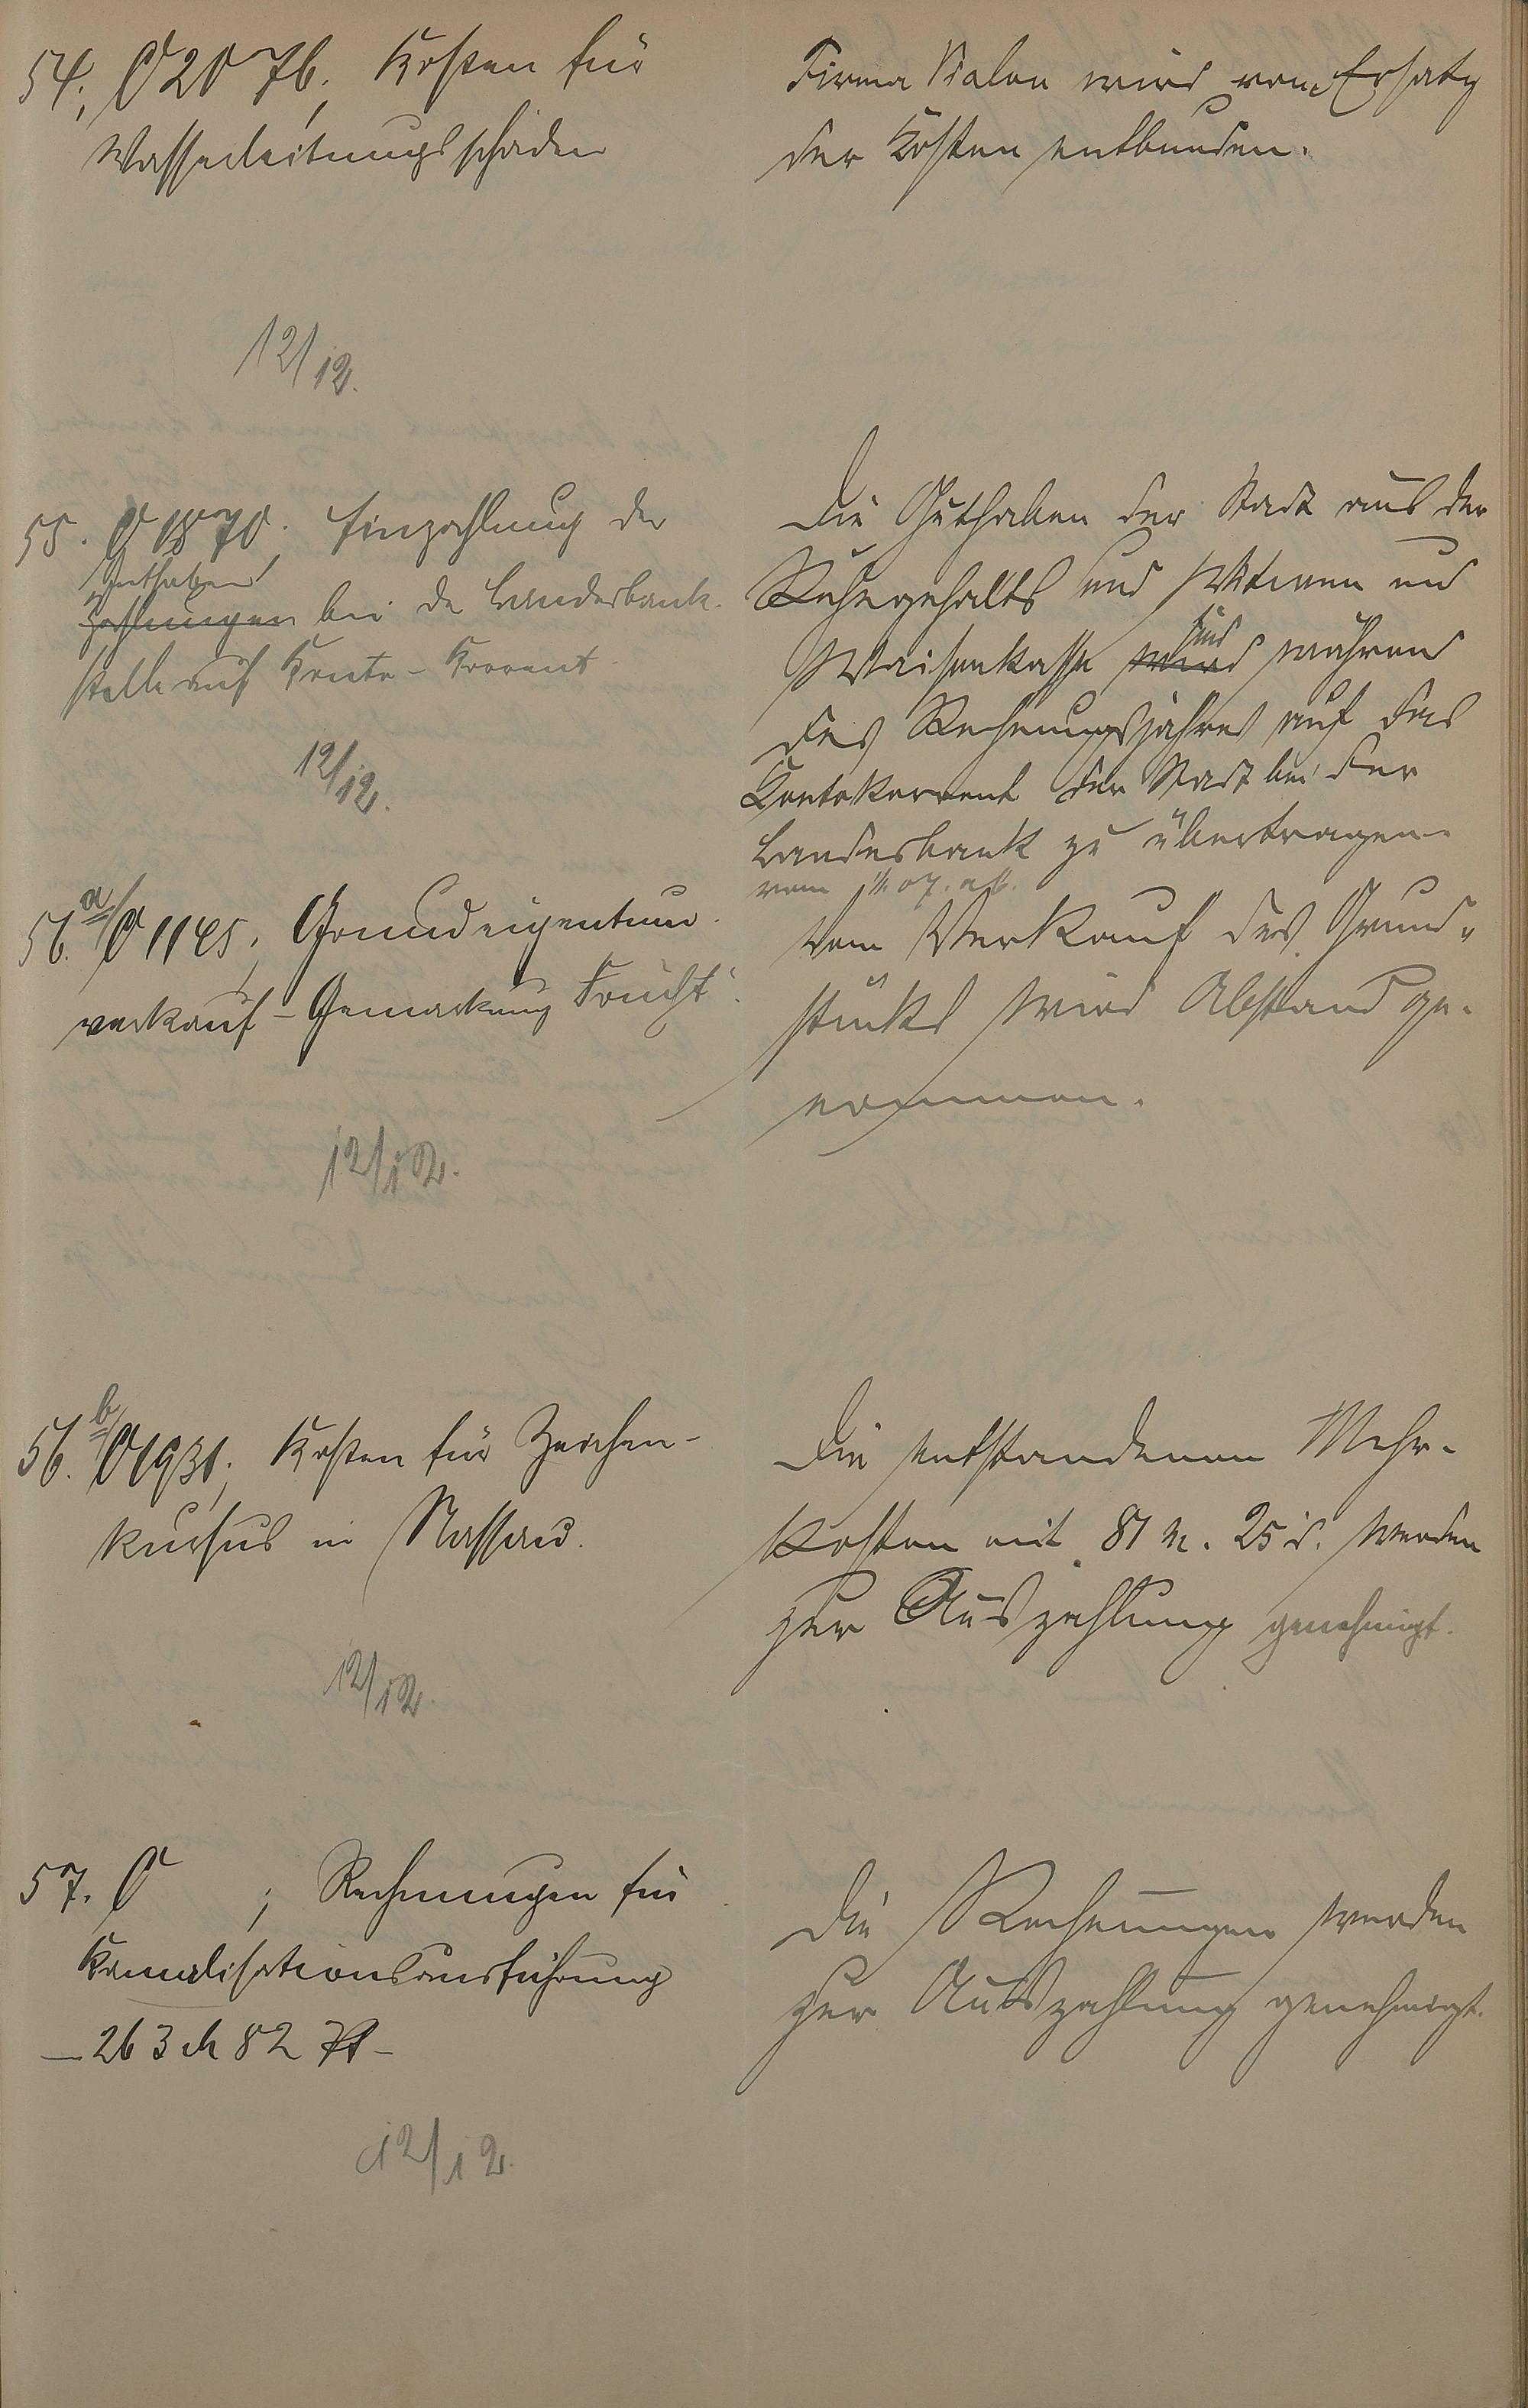 54. O 2076. Kosten für
Wasserleitungsschäden
Firma Kalon wird vom Ersatz
der Kosten entbunden.
12/12.
55. O 1870. Einzahlung der
Guthaben
Zahlungen bei der Landesbank-
stelle auf Konto-Korrent
12/12.
Die Guthaben der Stadt aus der
Ruhegehalts und Witwen und
Waisenkasse wird sind während
des Rechnungsjahres auf das
Kontokorrent der Stadt bei der
Landesbank zu übertragen
vom 1/1. 07. ab.
56.a/ O 1145; Grundeigentum-
verkauf - Gemarkung Frücht.
Vom Verkauf des Grund-
stücks wird Abstand ge-
nommen.
12/12.
56.b/ O 1931; Kosten für Zeichen-
kursus in Nassau.
Die entstandenen Mehr-
kosten mit 81 M. 25 d. werden
zur Auszahlung genehmigt.
12/12.
57. O ; Rechnungen für
Kanalisationsausführung
- 263 M 82 Pf -
Die Rechnungen werden
zur Auszahlung genehmigt.
12/12.